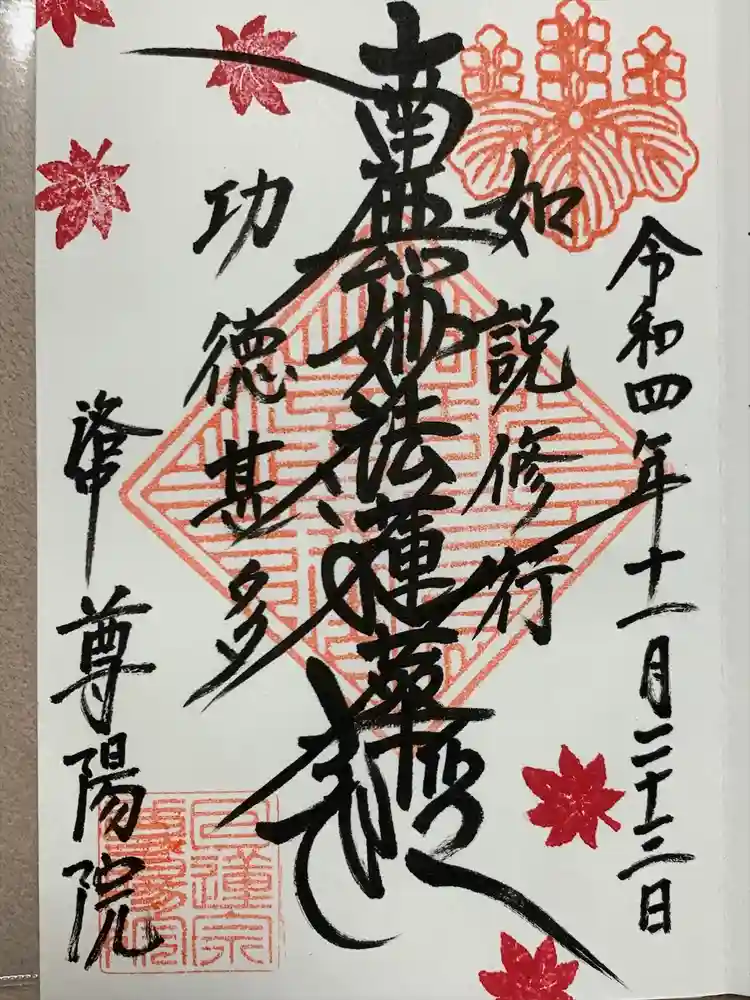 令和四年十一月二十三日
如説修行
南無妙法蓮華経
功徳甚多
洛中
尊陽院
日蓮宗
尊陽院